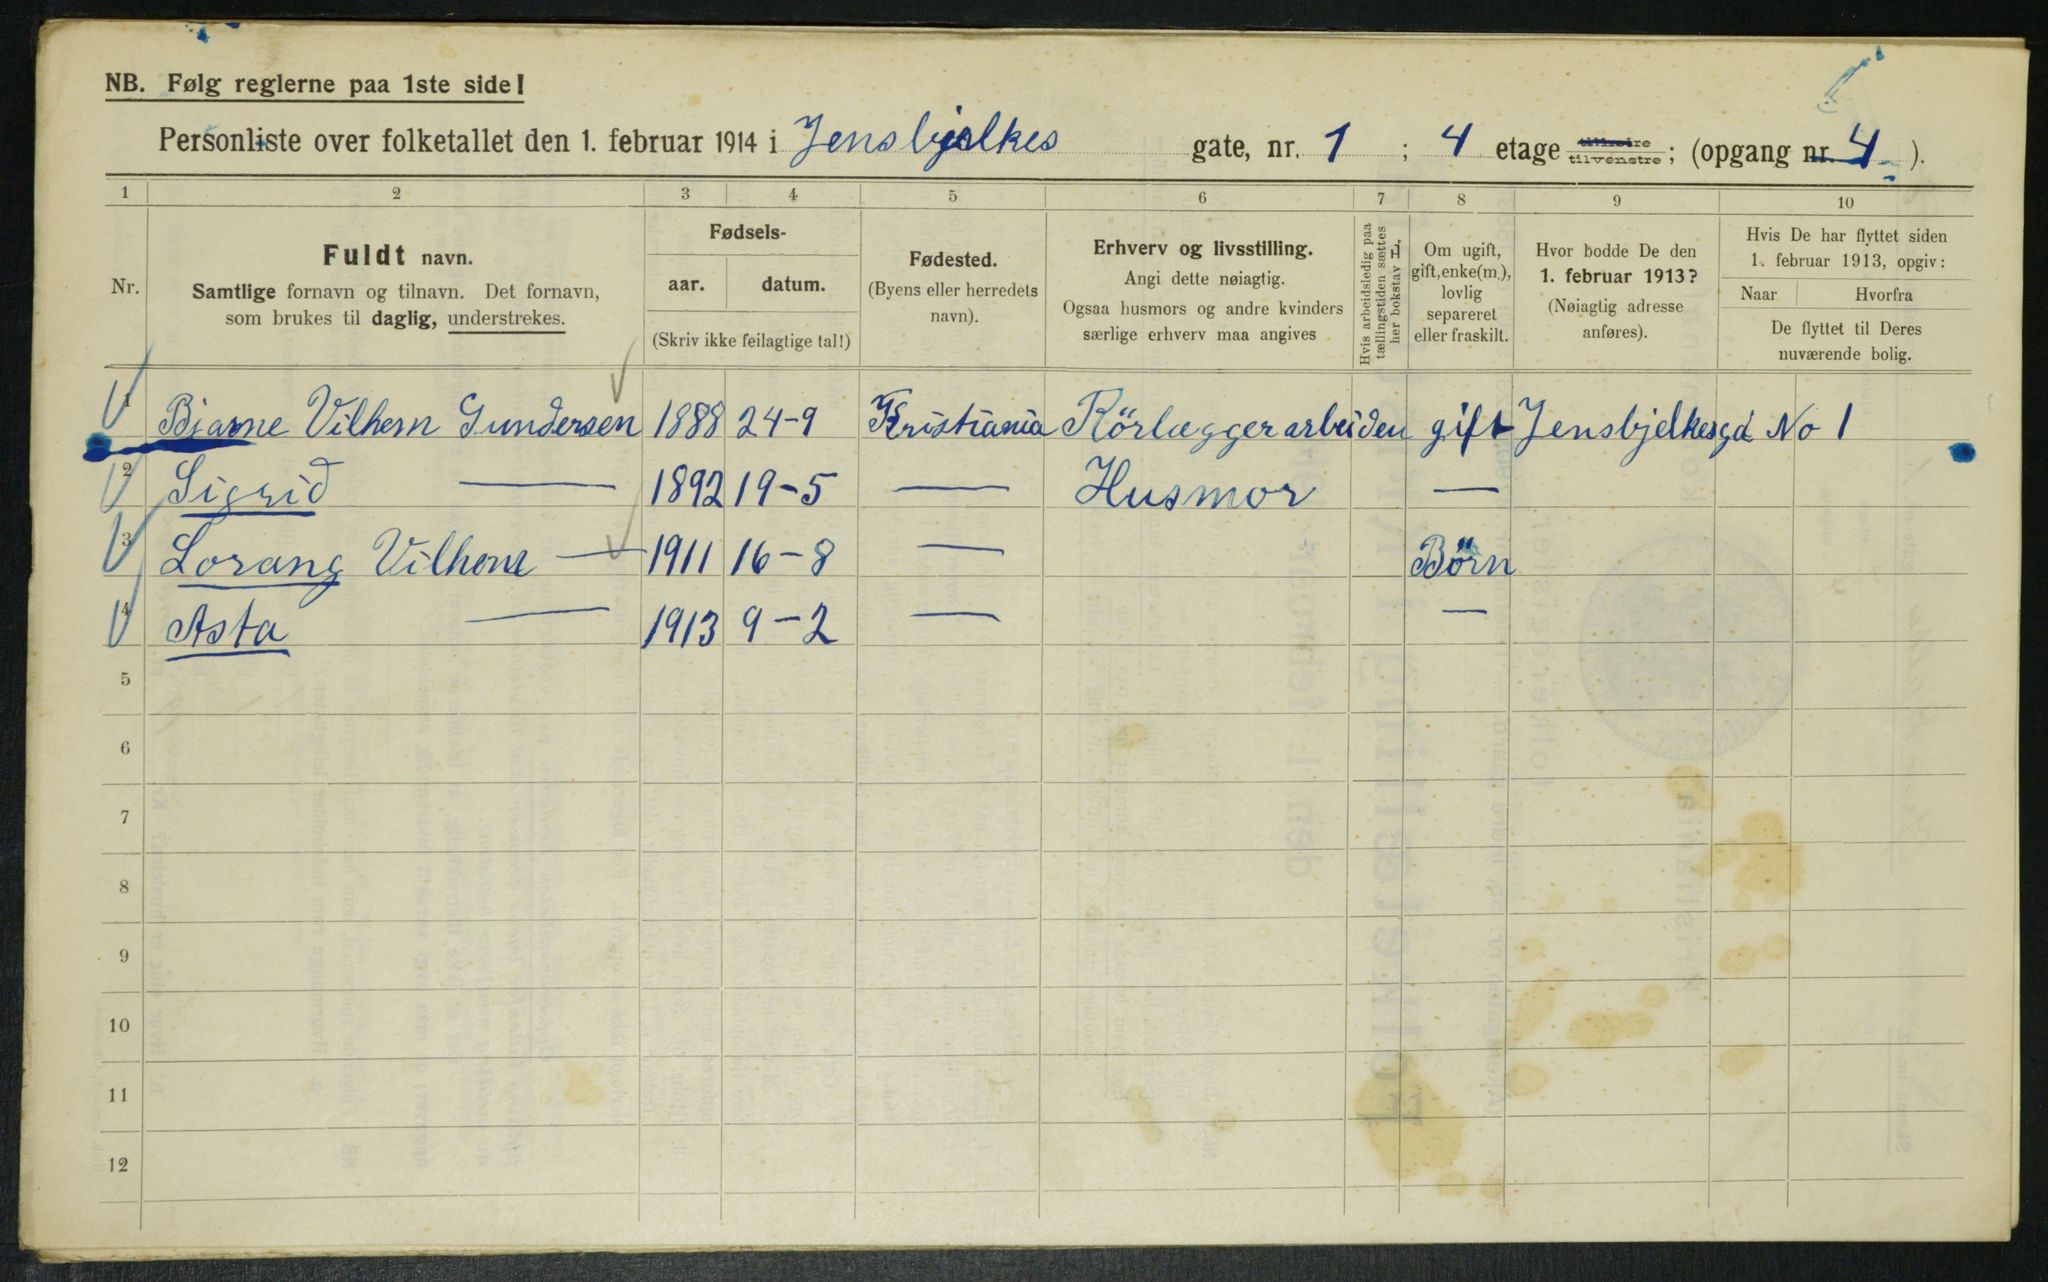 NB. Følg reglerne paa 1ste side!
Personliste over folketallet den 1. februar 1914 i Jensbjelkes gate, nr. 1 ; 4 etage tilhøire tilvenstre ; (opgang nr. 4 ).
1 2 3 4 5 6 7 8 9 10
Nr.
Fuldt navn.
Samtlige fornavn og tilnavn. Det fornavn,
som brukes til daglig, understrekes.
Fødsels-
aar. datum.
(Skriv ikke feilagtige tal!)
Fødested.
(Byens eller herredets
navn).
Erhverv og livsstilling.
Angi dette nøiagtig.
Ogsaa husmors og andre kvinders
særlige erhverv maa angives
Hvis arbeidsledig paa
tællingstiden sættes
her bokstav L.
Om ugift,
gift, enke(m.),
lovlig
separeret
eller fraskilt.
Hvor bodde De den
1. februar 1913?
(Nøiagtig adresse
anføres).
Hvis De har flyttet siden
1. februar 1913, opgiv:
Naar Hvorfra
De flyttet til Deres
nuværende bolig.
1 Bjarne Vilhem Gundersen 1888 24-9 Kristiania Rörlæggerarbeiden gift Jensbjelkesgd No 1
2 Sigrid — 1892 19-5 — Husmor —
3 Lorang Vilhem — 1911 16-8 — Börn
4 Asta — 1913 9-2 — —
5
6
7
8
9
10
11
12